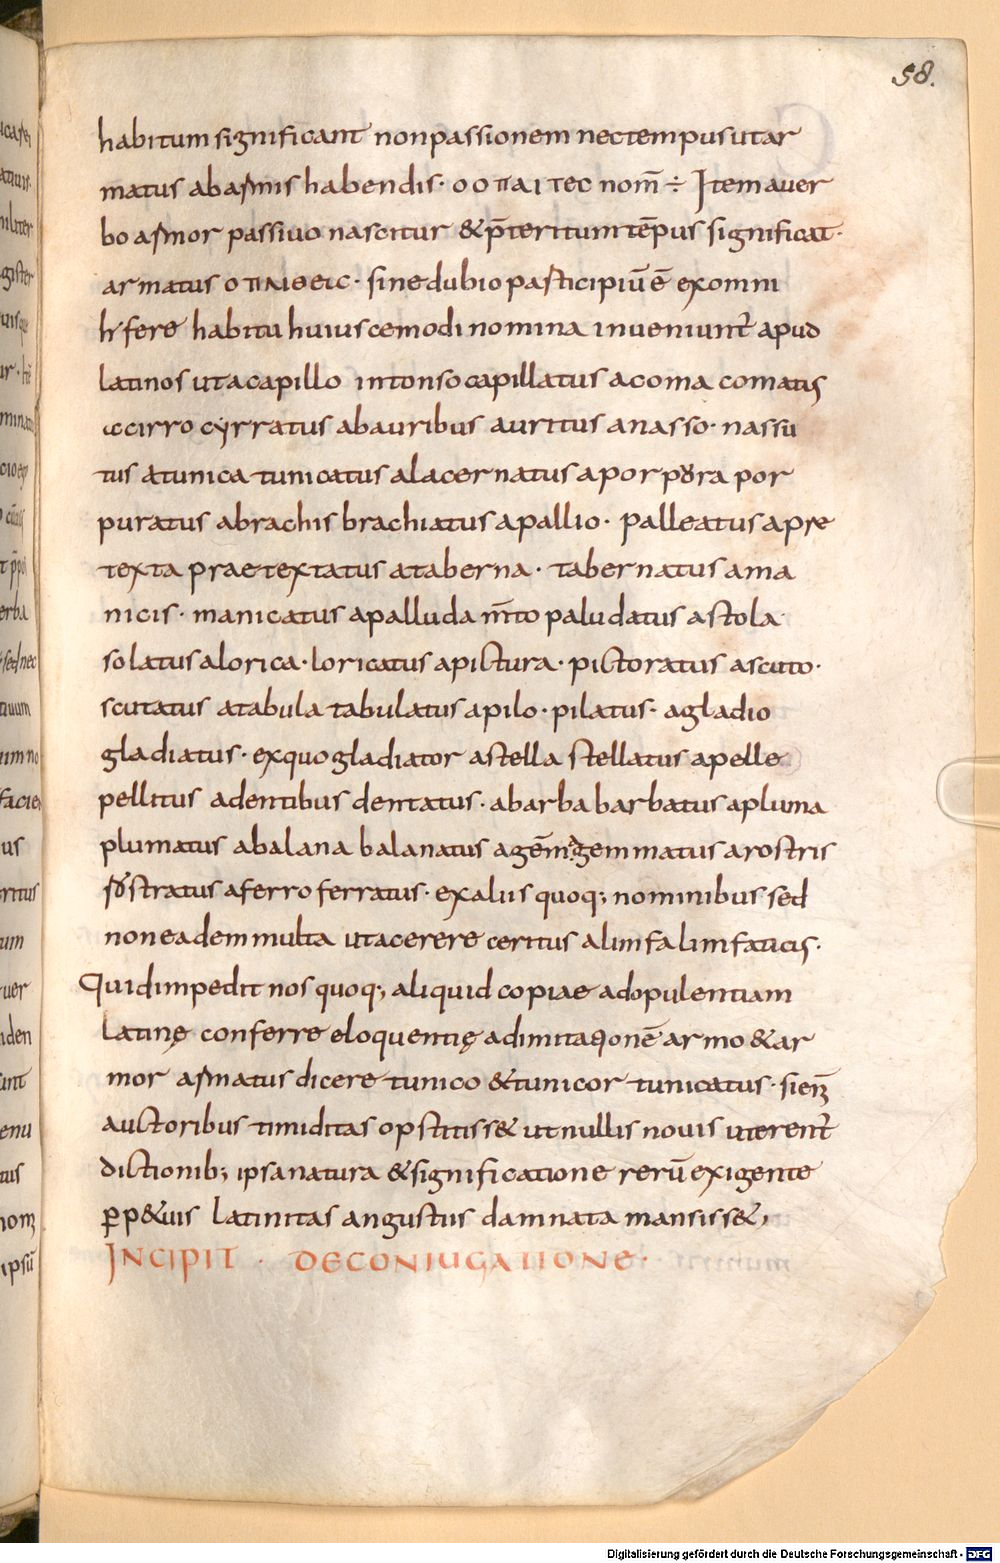 58.
habitum significant non passionem nec tempus ut ar
matus ab armis habendis · o οπαιτεc nom̄ ÷ Item a ver
bo armor passivo nascitur & p̄teritum tēpus significat ·
armatus οπλιθεις · sine dubio participiū ē ex omni
h· fere habitu huiuscemodi nomina inveniunt̄ apud
latinos ut a capillo intonso capillatus a coma comatis
a cirro cyrratus ab auribus auritus a nasso · nassu
tus a tunica tunicatus a lacernatus a por pura por
puratus a brachis brachiatus a pallio · palleatus a pre
texta praetextatus a taberna · tabernatus a ma
nicis · manicatus a palludam̄to paludatus a stola
solatus a lorica · loricatus a pictura · pictoratus a scuto ·
scutatus a tabula tabulatus a pilo · pilatus · a gladio
gladiatus · ex quo gladiator a stella stellatus a pelle
pellitus a dentibus dentatus · a barba barbatus a pluma
plumatus a balana balanatus a gēm gemmatus a rostris
rostratus a ferro ferratus · ex aliis quoq; nominibus sed
non eadem multa ut a cerere ceritus a limfa limfaticis ·
Quid impedit nos quoq; aliquid copiae ad opulentiam
latinę conferre eloquentię ad imitationē armo & ar
mor armatus dicere tunico & tunicor tunicatus · si eni̅
auctoribus timiditas opstitiss& ut nullis novis uterent̄
dictionib; ipsa natura & significatione rerū exigente
ꝑp&uis latinitas angustiis damnata mansiss&;
INCIPIT · DE CONIUGATIONE ·
Digitalisierung gefördert durch die Deutsche Forschungsgemeinschaft - DFG